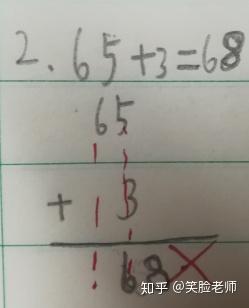 2. 65+3=68
65
+ 3
68
知乎 @笑脸老师